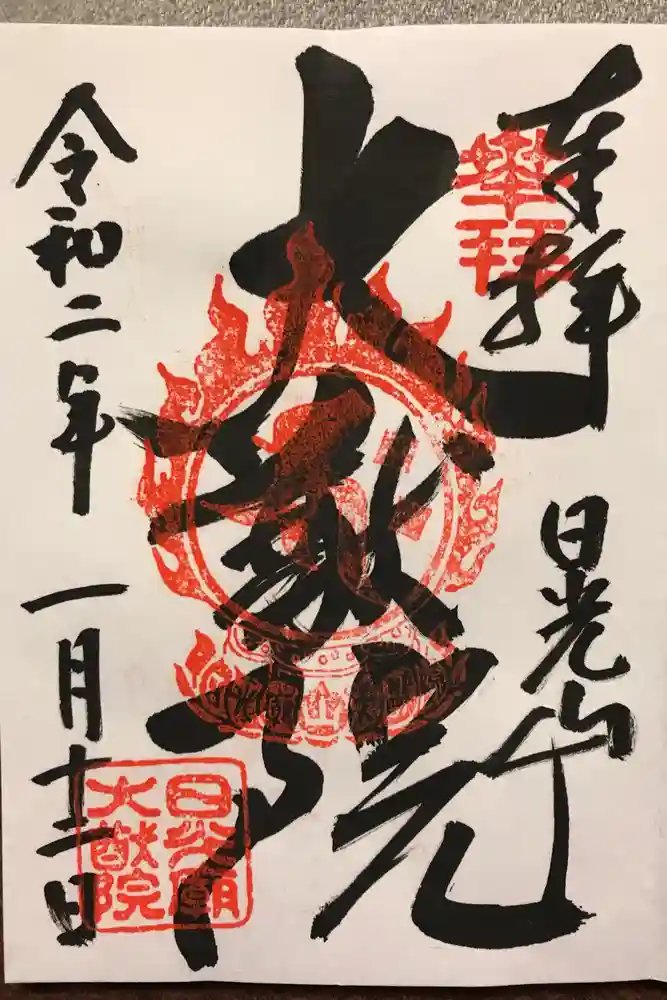 奉拝
捧拝
日光山
大猷院
令和二年
一月十二日
日光廟
大猷院